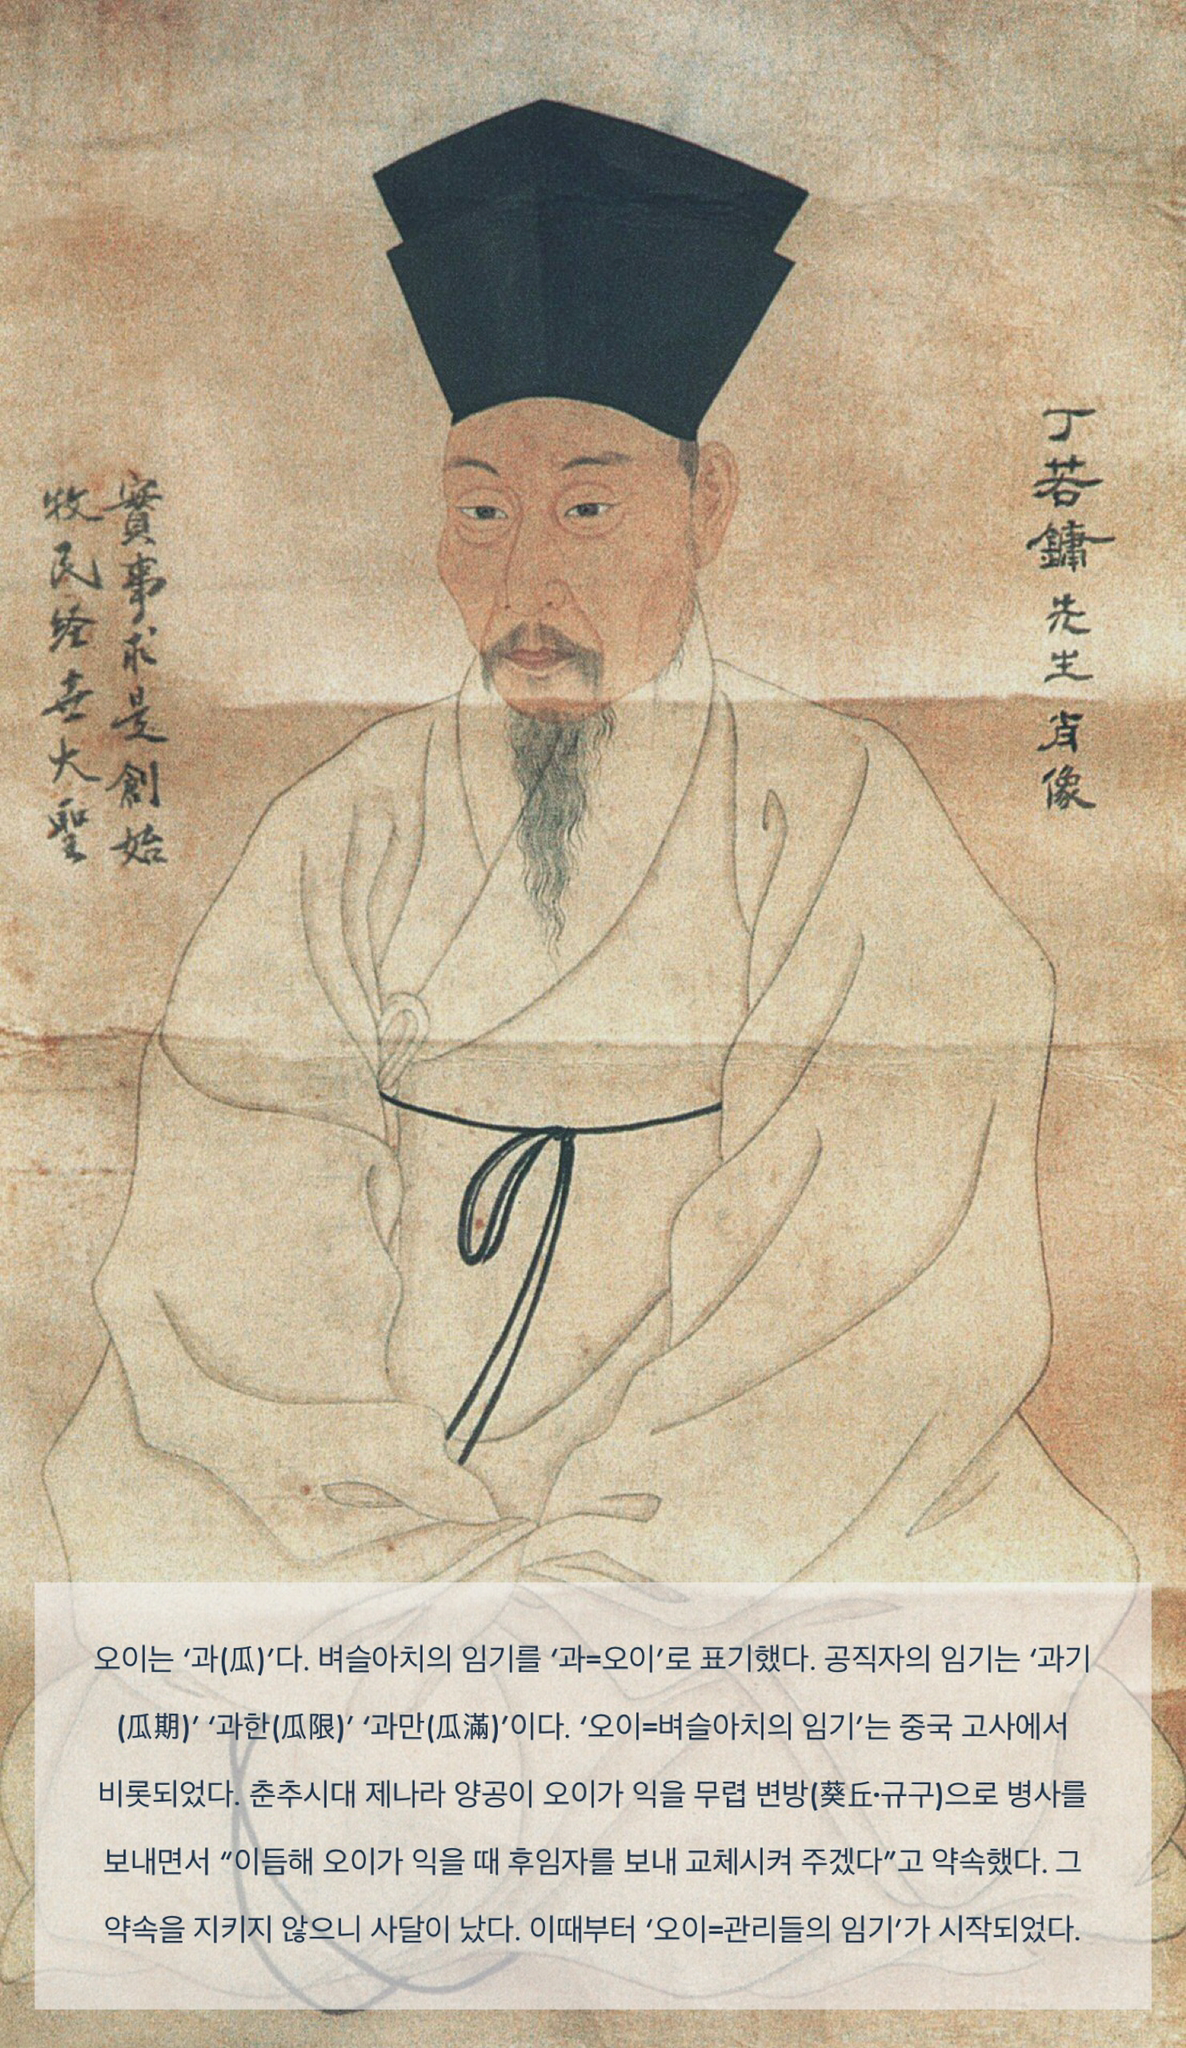 丁若鏞先生肖像
實事求是創始
牧民経世大聖
오이는 ‘과(瓜)’다. 벼슬아치의 임기를 ‘과=오이’로 표기했다. 공직자의 임기는 ‘과기
(瓜期)’ ‘과한(瓜限)’ ‘과만(瓜滿)’이다. ‘오이=벼슬아치의 임기’는 중국 고사에서
비롯되었다. 춘추시대 제나라 양공이 오이가 익을 무렵 변방(葵丘·규구)으로 병사를
보내면서 “이듬해 오이가 익을 때 후임자를 보내 교체시켜 주겠다”고 약속했다. 그
약속을 지키지 않으니 사달이 났다. 이때부터 ‘오이=관리들의 임기’가 시작되었다.